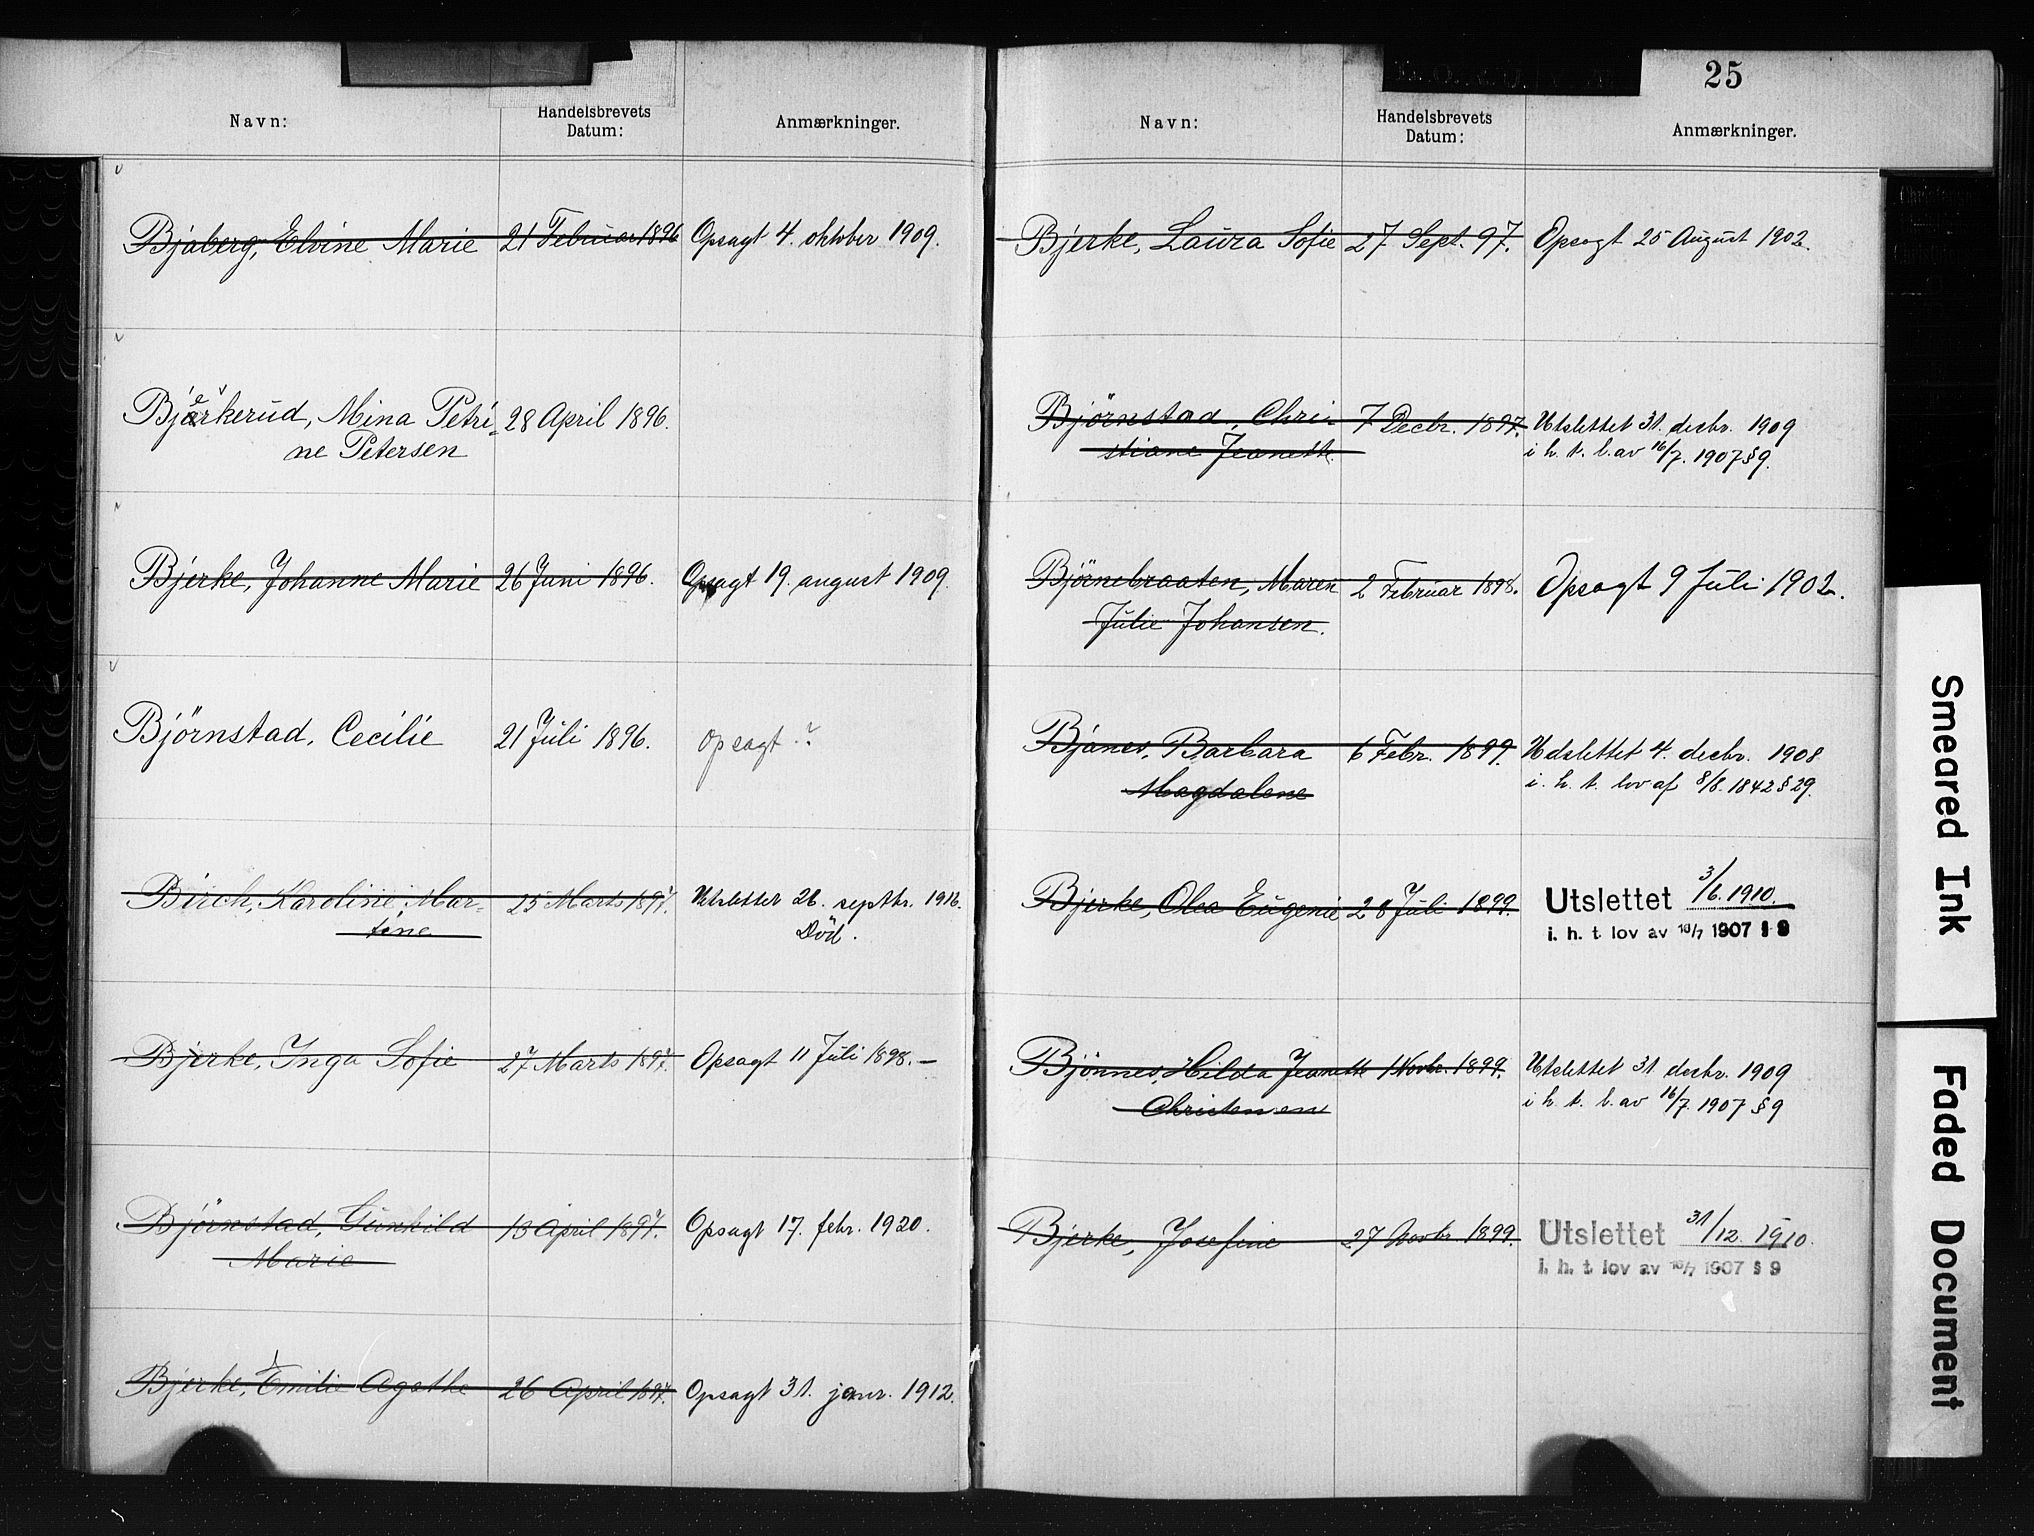 Navn: Handelsbrevets Datum: Anmærkninger.
Bjaberg, Elvine Marie 21 Februar 1896 Opsagt 4. oktober 1909.
Bjerkerud, Mina Petri- 28 April 1896.
ne Petersen
Bjerke, Johanne Marie 26 Juni 1896. Opsagt 19. august 1909.
Björnstad, Cecilie 21 Juli 1896. Opsagt ?
Birch, Karoline Mar- 25 Marts 1897. Utslettet 26. septbr. 1916.
tine Död.
Bjerke, Inga Sofie 27 Marts 1897. Opsagt 11 Juli 1898. —
Björnstad, Gunhild 13 April 1897. Opsagt 17. febr. 1920.
Marie
Bjerke, Emilie Agathe 26 April 1897. Opsagt 31. janr. 1912.
25
Navn: Handelsbrevets Datum: Anmærkninger.
Bjerke, Laura Sofie 27 Sept. 97. Opsagt 25 August 1902.
Björnstad, Chri- 7 Decbr. 1897. Utslettet 31. desbr. 1909
stiane Jeanette. i h. t. l. av 16/7. 1907 § 9.
Björnebraaten, Maren 2 Februar 1898. Opsagt 9 Juli 1902.
Julie Johansen.
Bjanes, Barbara 6 Febr. 1899. Udslettet 4. desbr. 1908
Magdalene i. h. t. lov af 8/8. 1842 § 29.
Bjerke, Olea Eugenie 28 Juli 1899. Utslettet 3/6. 1910.
i. h. t. lov av 16/7 1907 § 9
Bjönnes, Hilda Jeanette 1 Novbr. 1899. Utslettet 31 desbr. 1909
Christensen i h. t. l. av 16/7. 1907 § 9
Bjerke, Josefine 27 Novbr. 1899. Utslettet 31/12. 1910.
i. h. t. lov av 16/7 1907 § 9
Smeared Ink
Faded Document